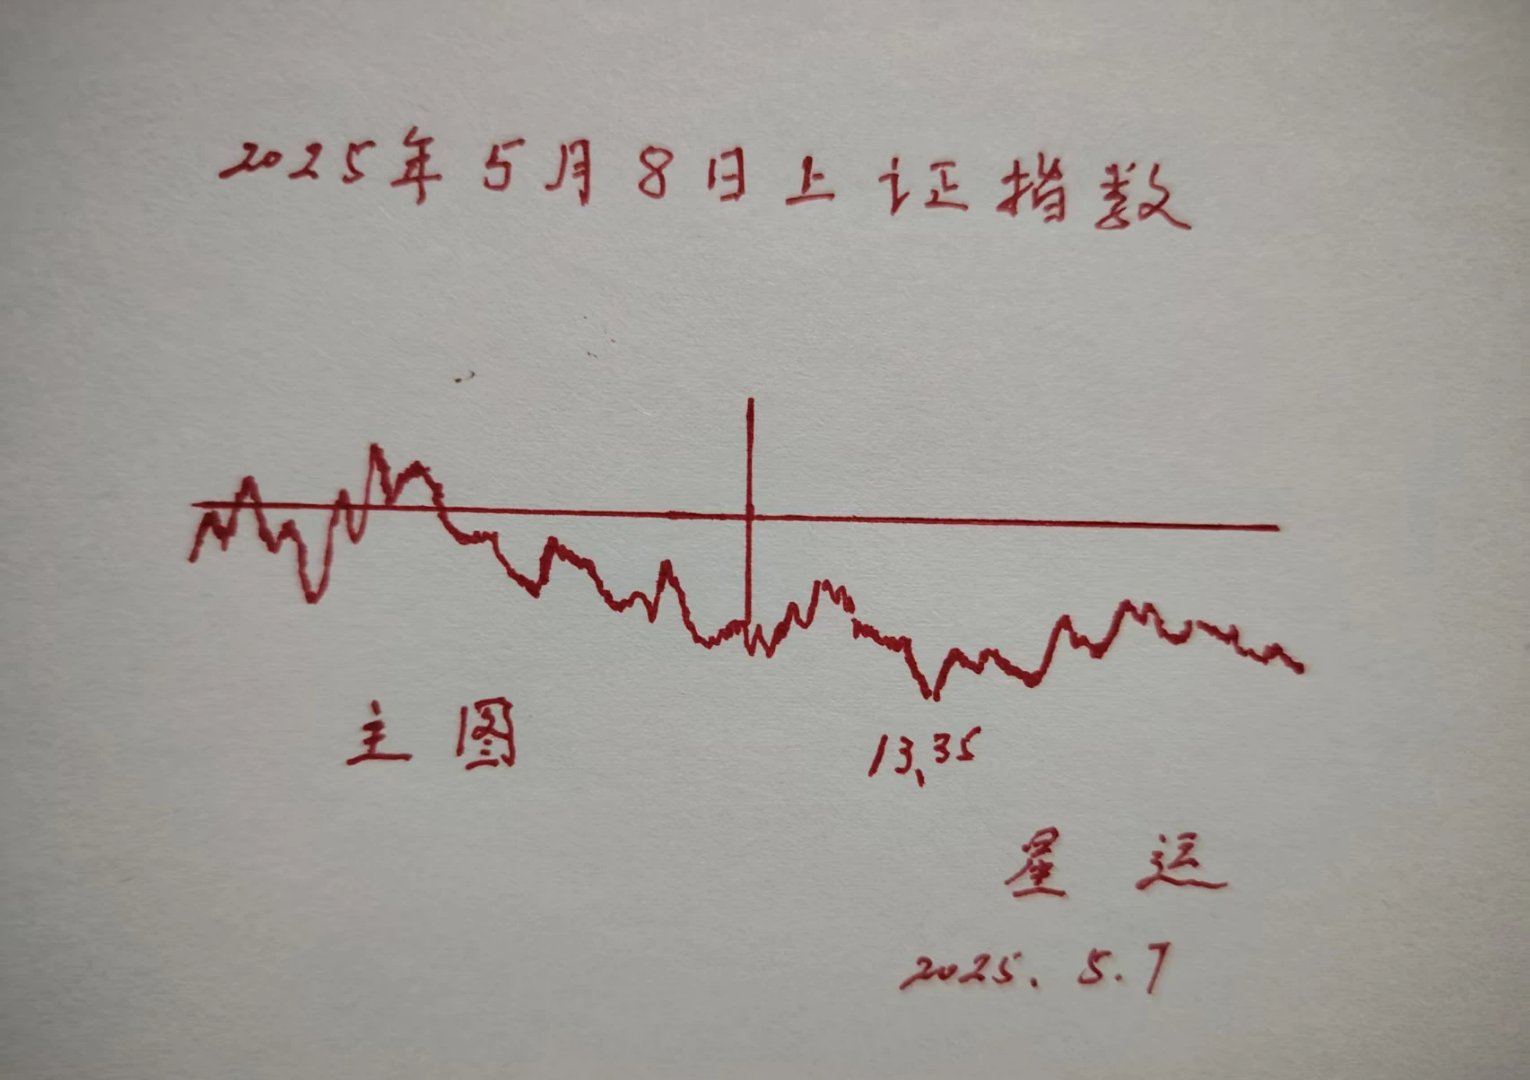 2025年5月8日上证指数
主图
13.35
星运
2025.5.7